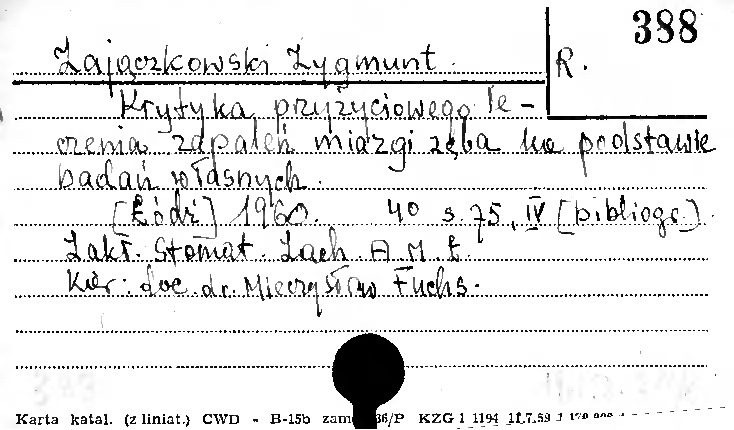 388
Zajączkowski Zygmunt. R.
Krytyka przyżyciowego le-
czenia zapaleń miazgi zęba na podstawie
badań własnych.
[Łódź] 1960. 40 s. 75, IV [bibliogr.)
Zakł. Stomat. Zach. A. M. Ł.
Kier: doc. dr. Mieczysław Fuchs.
Karta katal. (z liniat.) CWD - B-15b zam. 36/P KZG 1 1194 11.7.59